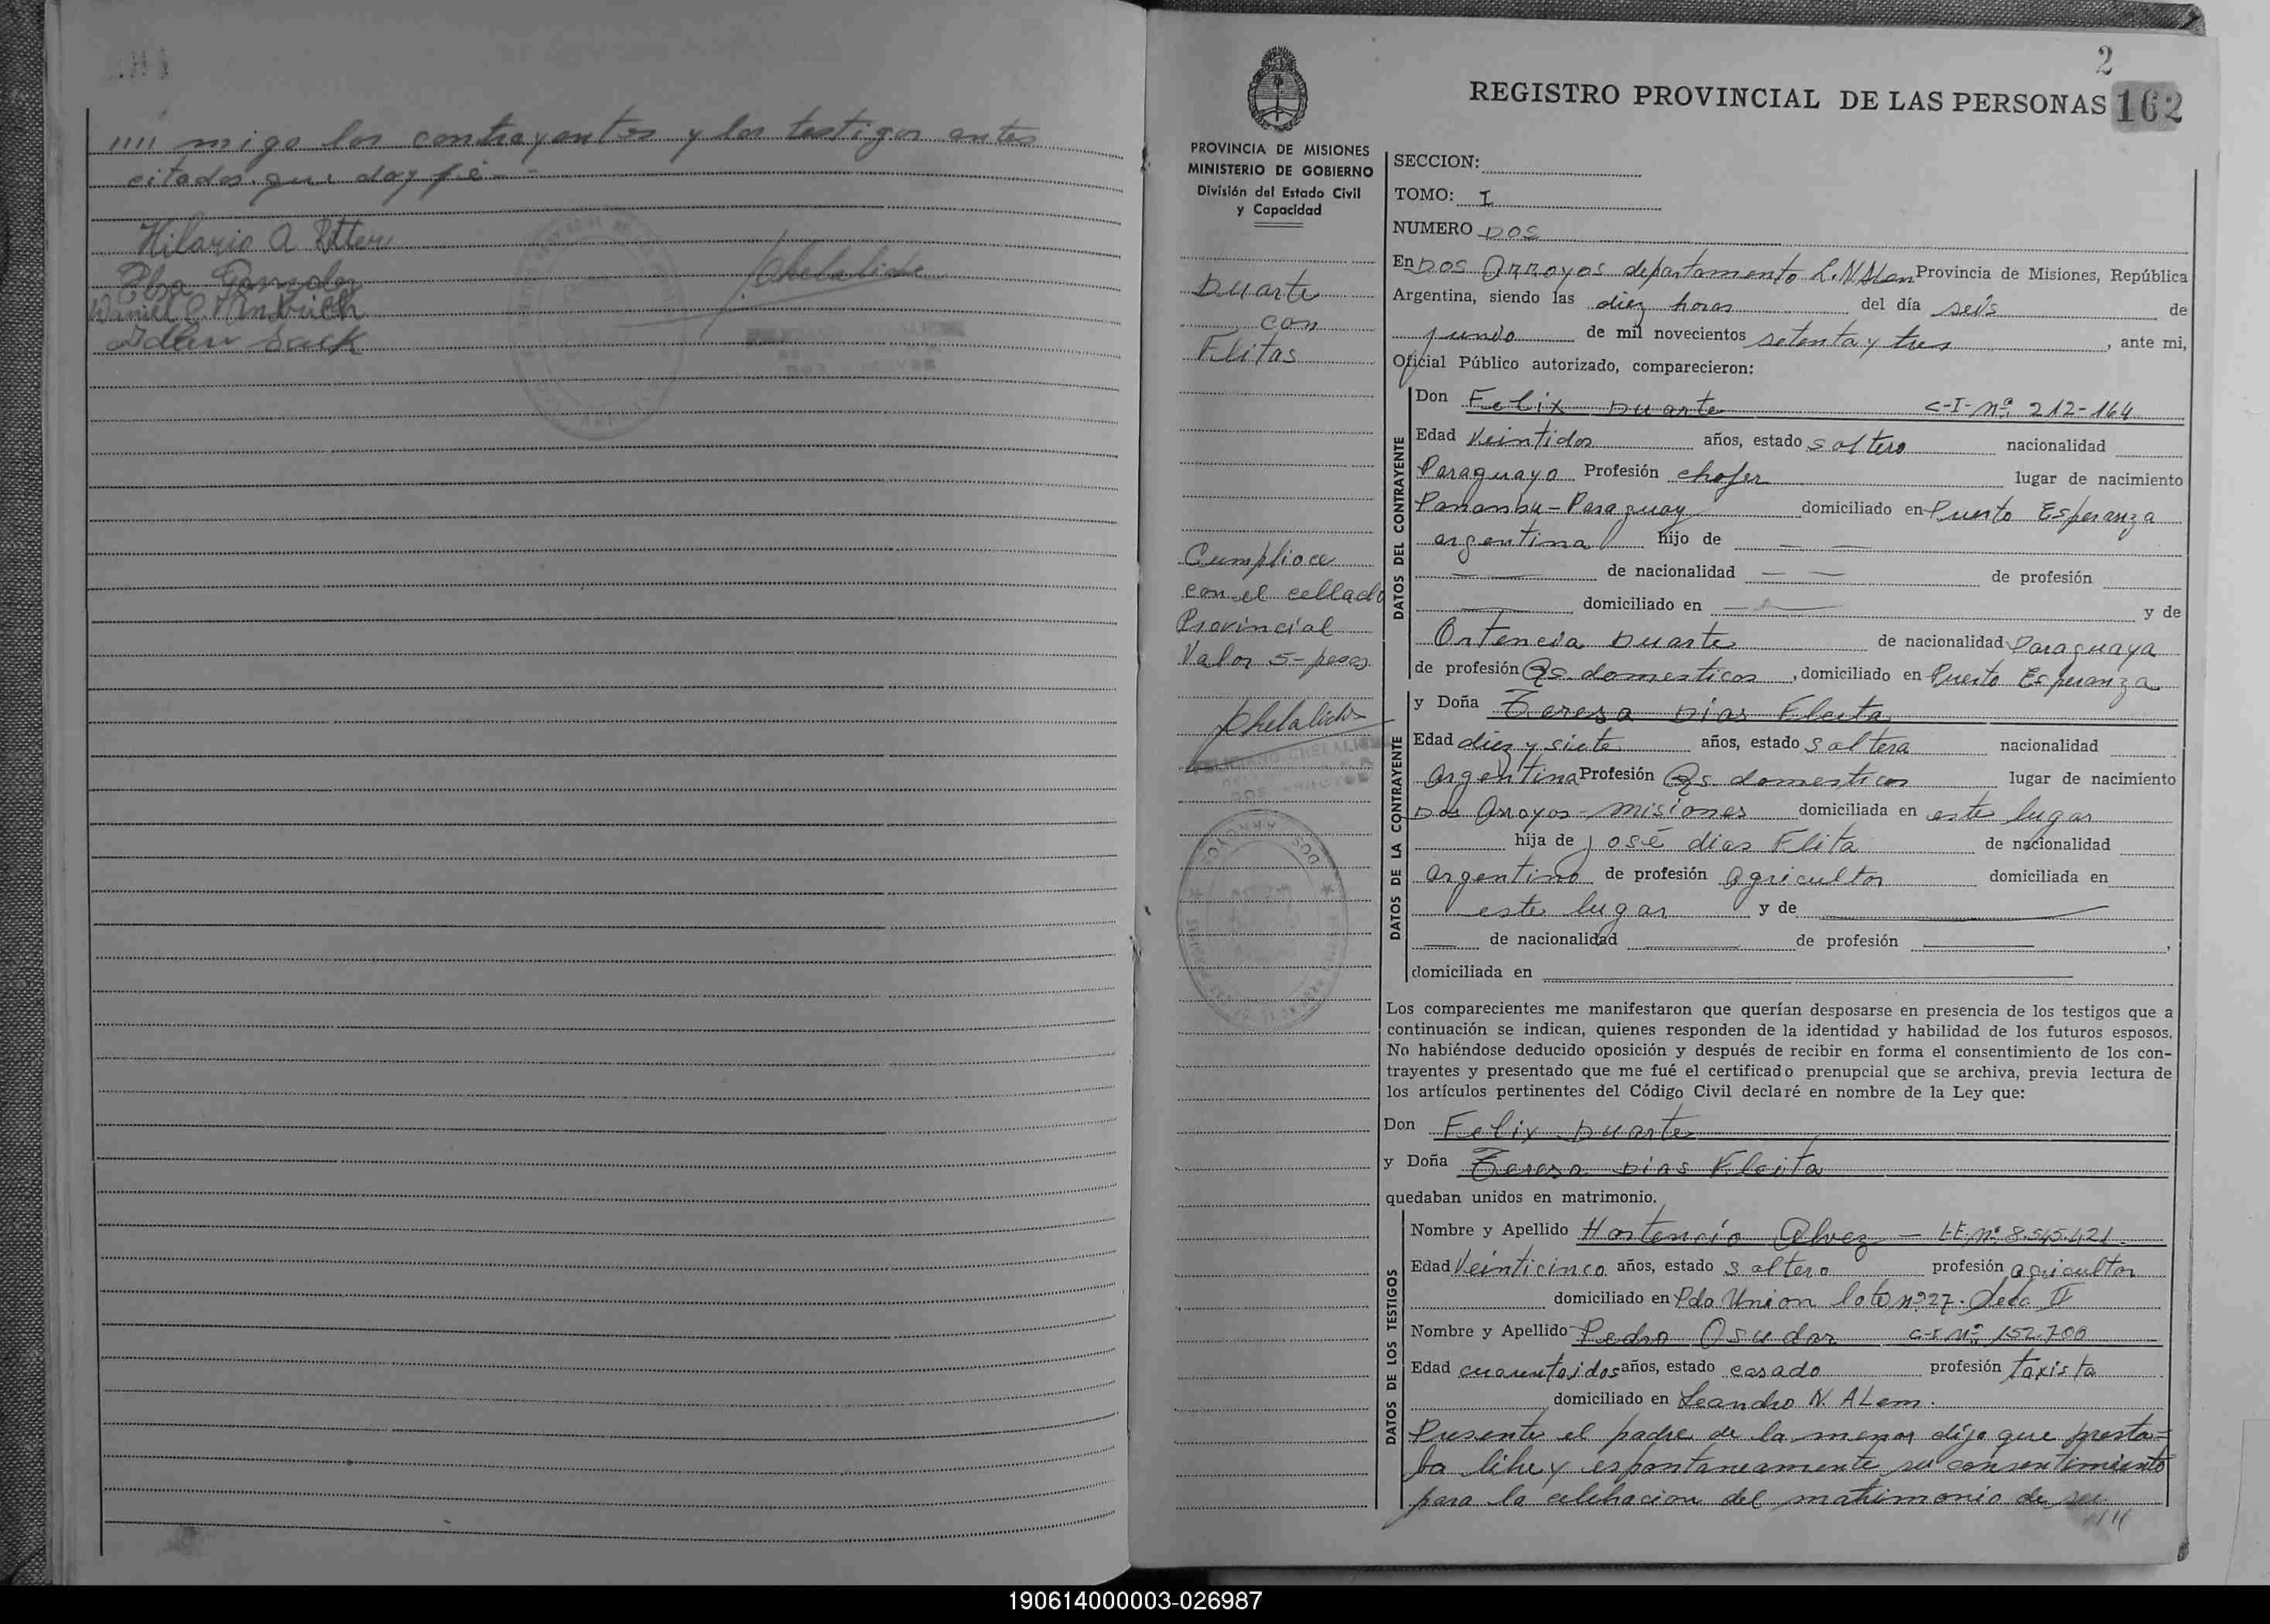 //// migo los contrayentes y los testigos antes
citados. que doy fé - -
Hilario A Ritter
Elsa Gonzalez
Idlav Sack
Chelaliche
2
REGISTRO PROVINCIAL DE LAS PERSONAS 162
PROVINCIA DE MISIONES
MINISTERIO DE GOBIERNO
División del Estado Civil
y Capacidad
Duarte
con
Flitas
Cumplioce
con el cellado
Provincial
Valor 5- pesos
Chelaliche
DOS ARROYOS
SECCION:
TOMO: I
NUMERO DOS
En DOS Arroyos departamento L. N Alen Provincia de Misiones, República
Argentina, siendo las diez horas del día seis de
junio de mil novecientos setenta y tres, ante mi,
Oficial Público autorizado, comparecieron:
DATOS DEL CONTRAYENTE
Don Felix Duarte C-I-Nº 212-164
Edad Veintidos años, estado soltero nacionalidad
Paraguayo Profesión chofer lugar de nacimiento
Panambu - Paraguay domiciliado en Puerto Esperanza
argentina hijo de — —
— — de nacionalidad — — de profesión
— domiciliado en — y de
Ortencia Duarte de nacionalidad Paraguaya
de profesión Qs. domesticos, domiciliado en Puerto Esperanza
DATOS DE LA CONTRAYENTE
y Doña Teresa Dias Fleita
Edad diez y siete años, estado soltera nacionalidad
Argentina Profesión Qs. domesticos lugar de nacimiento
Dos Arroyos - Misiones domiciliada en este lugar
hija de José dias Flita de nacionalidad
argentino de profesión agricultor domiciliada en
este lugar y de —
— de nacionalidad — de profesión —,
domiciliada en —
Los comparecientes me manifestaron que querían desposarse en presencia de los testigos que a
continuación se indican, quienes responden de la identidad y habilidad de los futuros esposos.
No habiéndose deducido oposición y después de recibir en forma el consentimiento de los con-
trayentes y presentado que me fué el certificado prenupcial que se archiva, previa lectura de
los artículos pertinentes del Código Civil declaré en nombre de la Ley que:
Don Felix Duarte
y Doña Teresa Dias Fleita
quedaban unidos en matrimonio.
DATOS DE LOS TESTIGOS
Nombre y Apellido Hortencio Alvez — LE. Nº 8.545.421
Edad Veinticinco años, estado soltero profesión agricultor
domiciliado en Pda Union lote nº 27. Secc. II
Nombre y Apellido Pedro Osudar C-I. Nº 152.700
Edad cuarentaidos años, estado casado profesión taxista
domiciliado en Leandro N. ALem.
Presente el padre de la menor dijo que presta-
ba libre y espontaneamente su consentimiento
para la celebracion del matrimonio de su
////
190614000003-026987